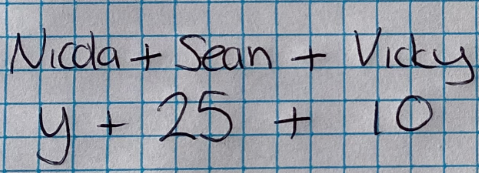 Nicola + Sean + Vicky
y + 25 + 10